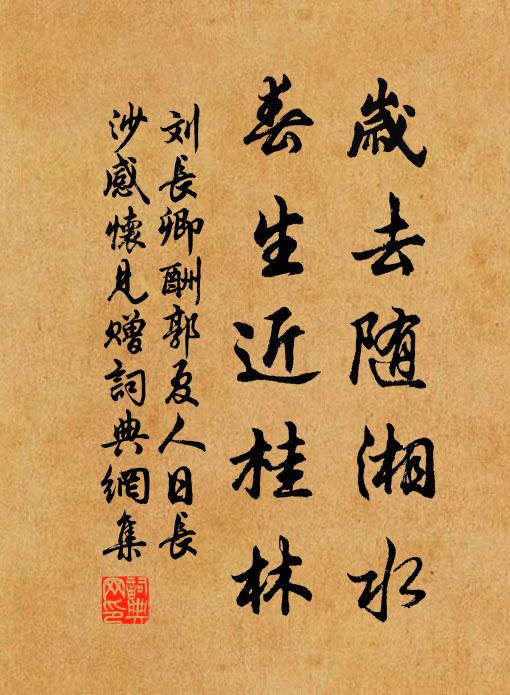 歲去随湘水
春生近桂林
刘長卿酬郭夏人日長
沙感懷見赠詞典網集
詞典网印